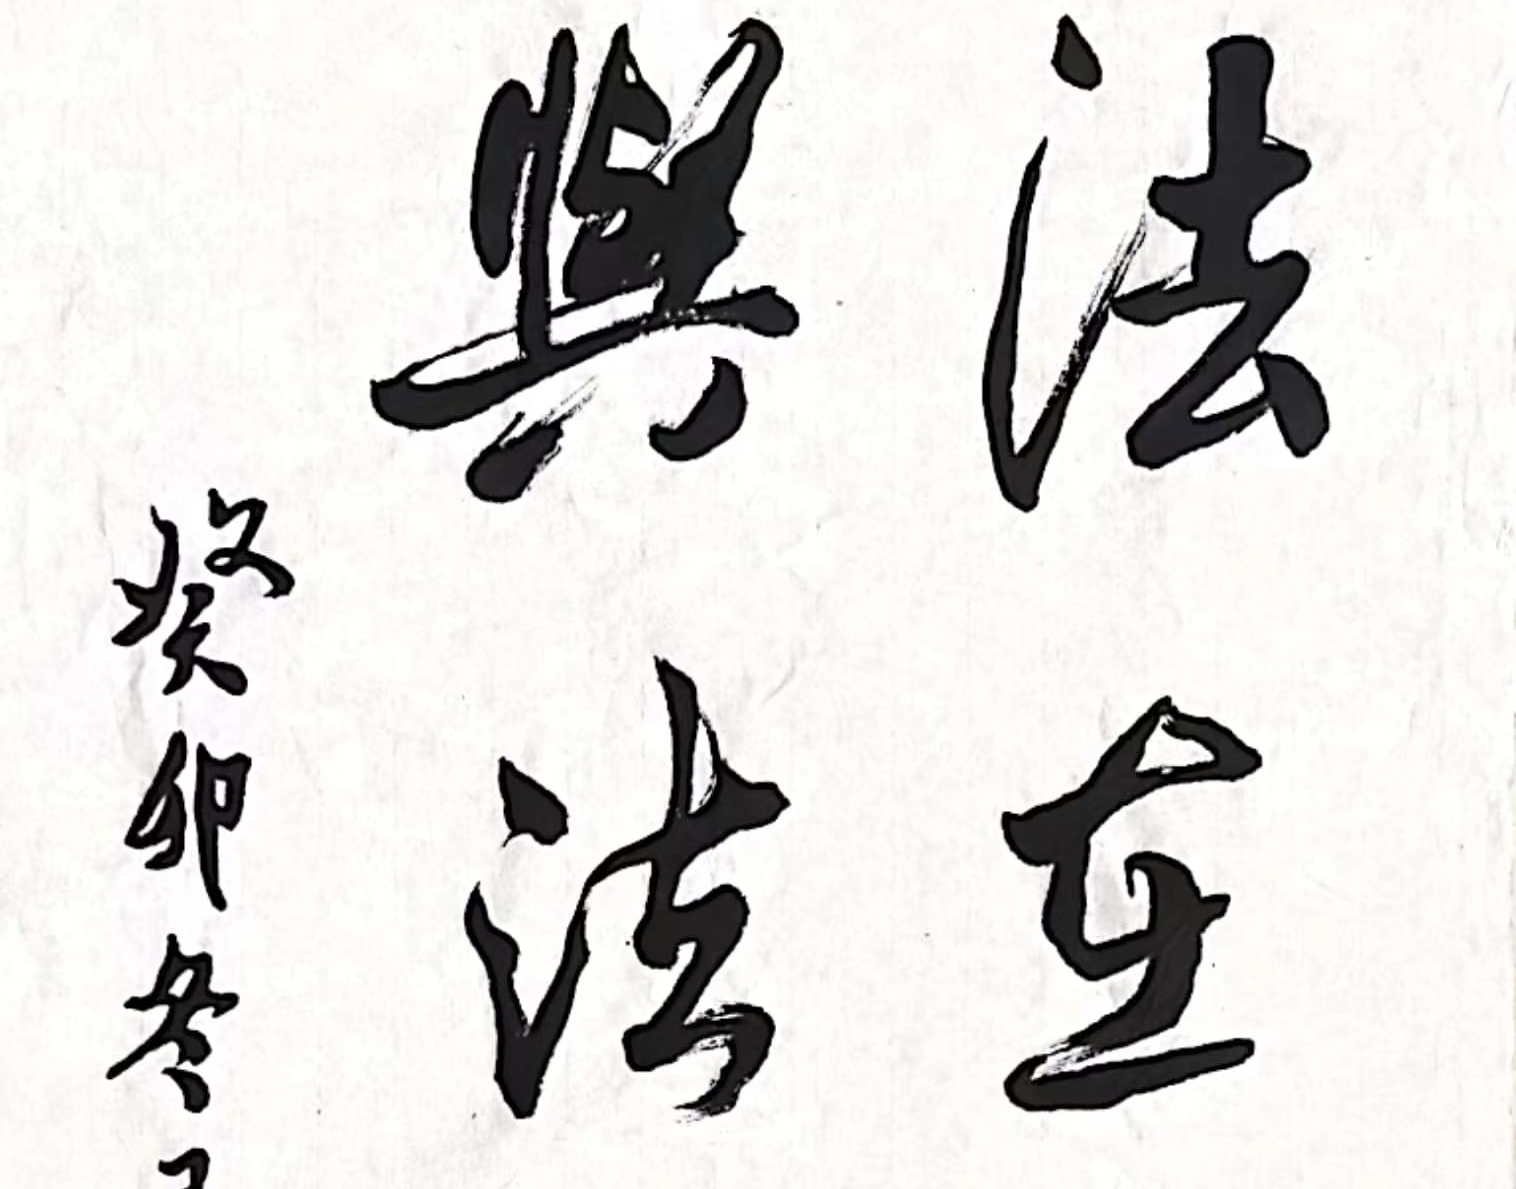 法在
與法
癸卯冬